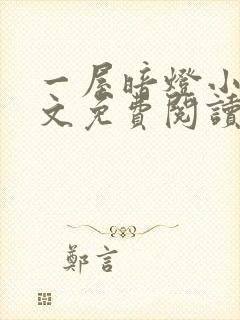 一屋暗燈小
文免費閱讀
鄭言